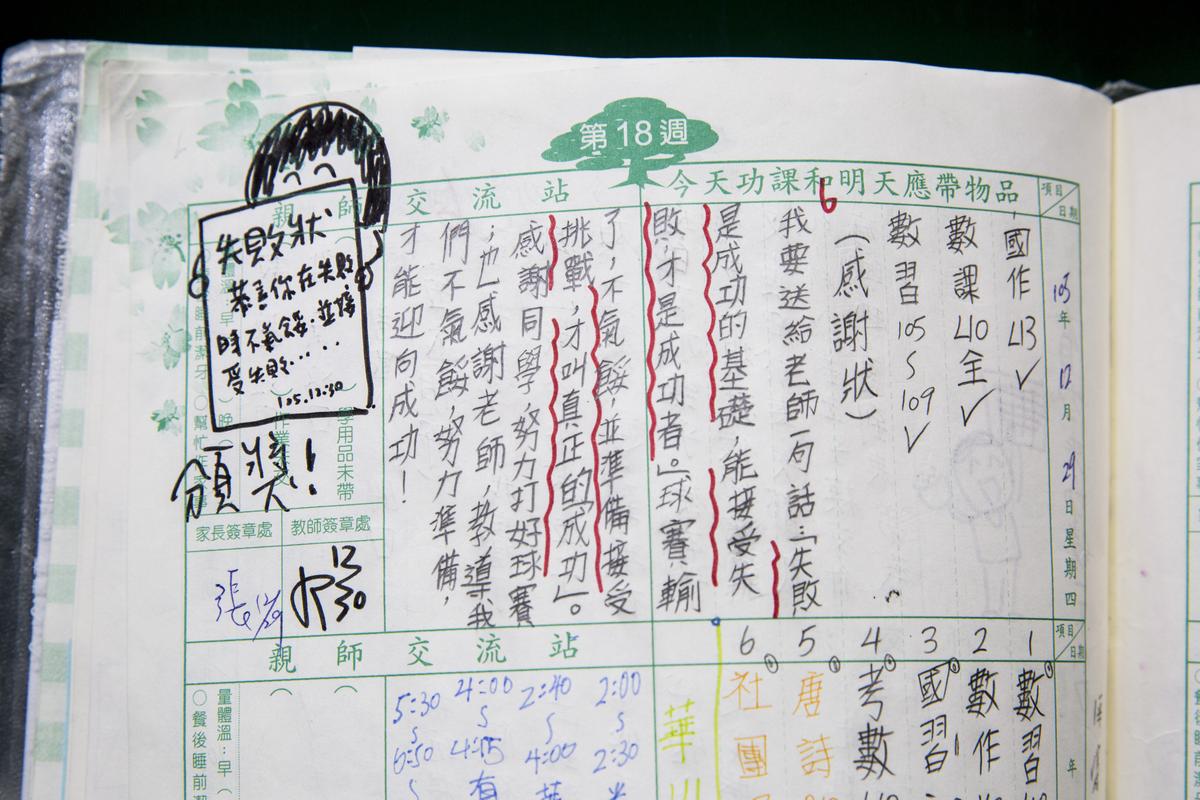 第18週
項目
日期
今天功課和明天應帶物品
親師交流站
105年12月29日星期四
國作L13✓
數課40全✓
數習105~109✓
6
(感謝狀)
我要送給老師一句話:「失敗
是成功的基礎,能接受失
敗,才是成功者。」球賽輸
了,不氣餒,並準備接受
挑戰,才叫真正的「成功」。
感謝同學,努力打好球賽
;也感謝老師,教導我
們不氣餒,努力準備,
才能迎向成功!
失敗狀
恭喜你在失敗
時不氣餒.並接
受失敗……
105.12.30
頒獎!
學用品未帶
家長簽章處
教師簽章處
張12/29
12
30
項目
日期
年
1 數習
2 數作
3 國習
4 考數
5 唐詩
6 社團
華
親師交流站
2:00
~
2:30
2:40
~
4:00
4:00
~
4:05
有
5:30
~
6:50
~
量體溫:早(
○餐後睡前